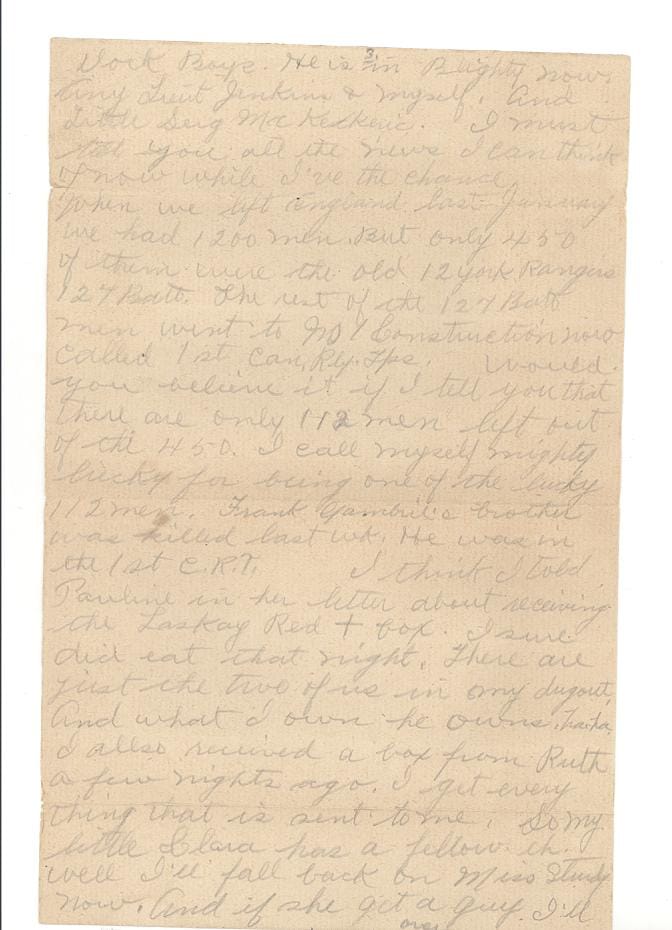 3
York Boys. He is in Blighty now
tiny Lieut Jenkins & myself. And
Little Serg McKeckeric. I must
tell you all the news I can think
of now while I've the chance,
When we left england last January
we had 1200 men. But only 450
of them were the old 12 york Rangers
127 Batt. The rest of the 127 Batt
men went to No 1 Construction now
called 1st Can, Rly. Tps. Would
you believe it if I tell you that
there are only 112 men left out
of the 450. I call myself mighty
lucky for being one of the lucky
112 men. Frank Gambril's brother
was killed last wk. He was in
the 1st C.R.T. I think I told
Pauline in her letter about receiving
the Laskay Red + box. I sure
did eat that night. There are
just the two of us in my dugout,
And what I own he owns. ha ha.
I allso received a box from Ruth
a few nights ago. I get every
thing that is sent to me. So my
little Clara has a fellow eh.
well I'll fall back on Miss
now. And if she get a guy I'll
over